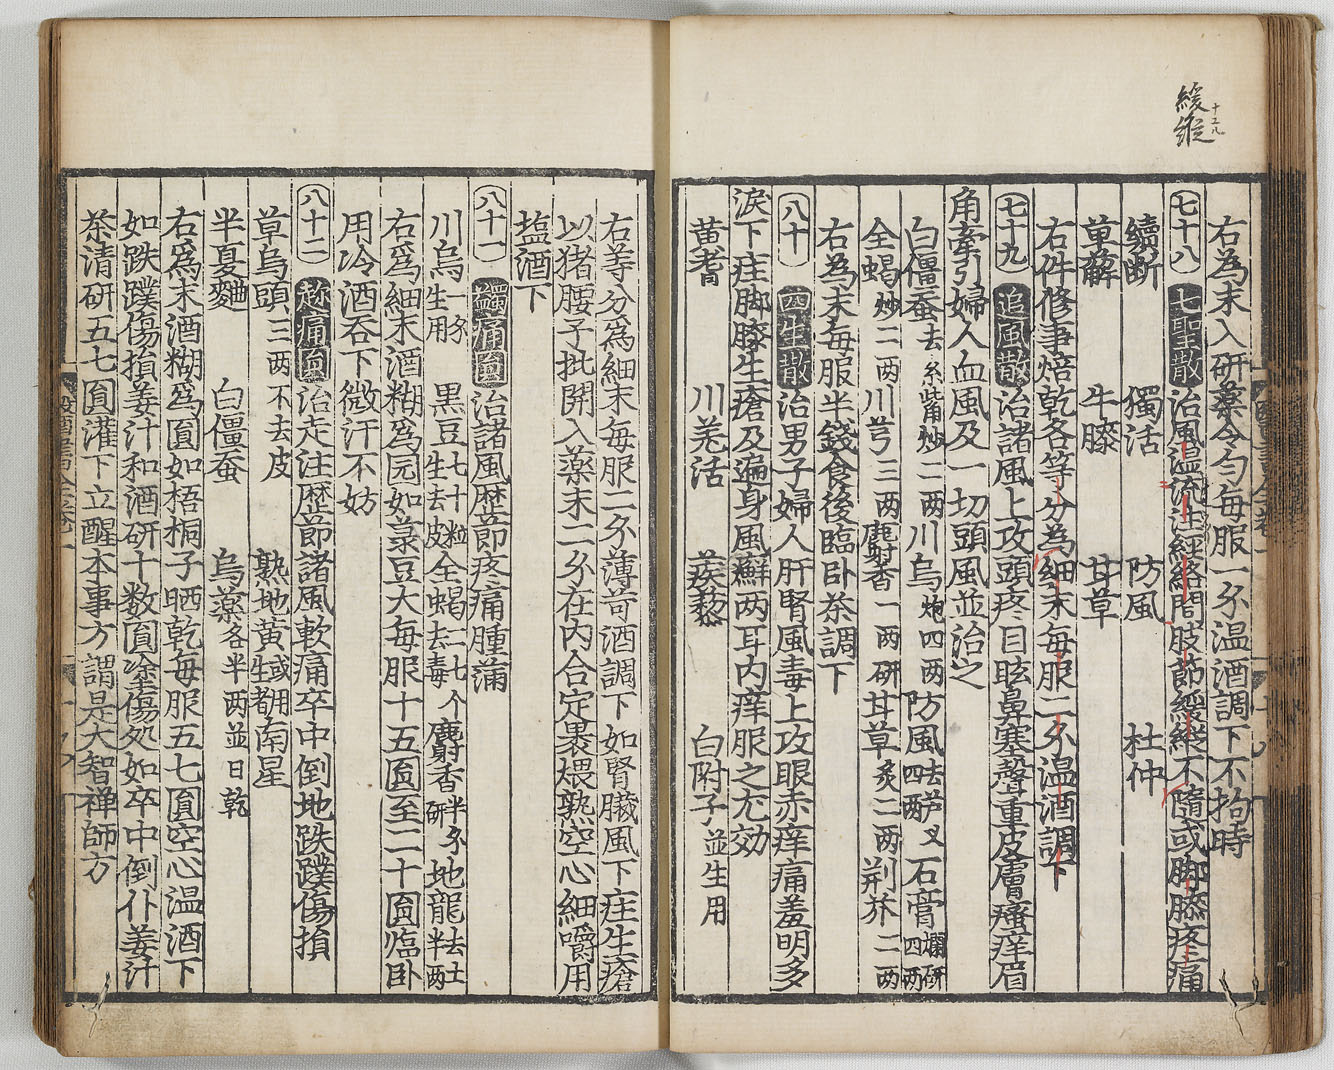 緩縱
右為末入研藥令勻每服一分温酒調下不拘時
七十八 七聖散 治風温流注經絡間肢節緩縱不隨或脚膝疼痛
續断 獨活 防風 杜仲
萆薢 牛膝 甘草
右件修事焙乾各等分為細末每服二分温酒調下
七十九 追風散 治諸風上攻頭疼目眩鼻塞聲重皮膚瘙痒眉
角牽引婦人血風及一切頭風並治之
白僵蚕去糸觜炒二两川烏炮四两防風去芦叉四两石膏爛研四两
全蝎炒二两川芎三两麝香一两研甘草炙二两荆芥二两
右為末每服半錢食後臨卧茶調下
八十 四生散 治男子婦人肝腎風毒上攻眼赤痒痛羞明多
淚下疰脚膝生瘡及遍身風癬两耳内痒服之尤効
黄耆 川羌活 蒺藜 白附子並生用
右等分為細末每服二分薄苛酒調下如腎臟風下疰生瘡
以猪腰子批開入藥末二分在内合定裹煨熟空心細嚼用
塩酒下
八十一 蠲痛圎 治諸風歷節疼痛腫滿
川烏一分生用 黒豆七十粒生去皮全蝎二七个去毒麝香半分研地龍去土半两
右為細末酒糊為园如菉豆大每服十五圎至二十圎臨卧
用冷酒吞下微汗不妨
八十二 趂痛圎 治走注歷節諸風軟痛卒中倒地跌蹼傷損
草烏頭三两不去皮 熟地黄或用生者南星
半夏麯 白僵蚕 烏藥各半两並日乾
右為末酒糊為圎如梧桐子晒乾每服五七圎空心温酒下
如跌蹼傷損姜汁和酒研十数圎塗傷処如卒中倒仆姜汁
茶清研五七圎灌下立醒本事方謂是大智禅師方